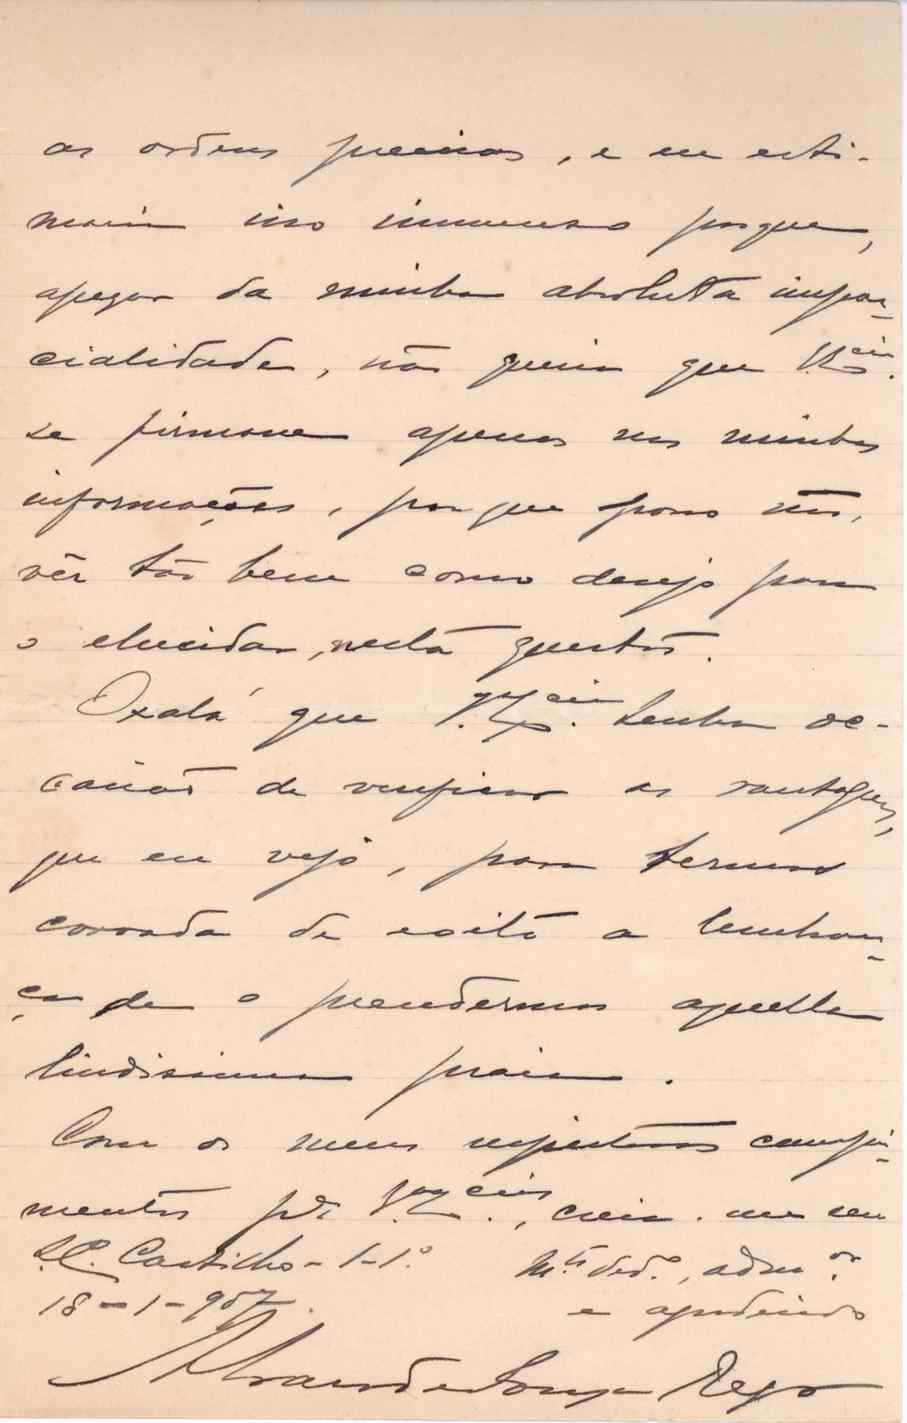 as ordens precisas, e eu esti-
maria isso immenso porque,
apezar da minha absoluta impar-
cialidade, não queria que V. Ex.cia
se firmasse apenas nas minhas
informações, porque posso não
vêr tão bem como desejo para
o elucidar, nesta questão.
Oxalá que V. Ex.cia tenha oc-
casião de verificar as vantagens,
que eu vejo, para termos
coroada de exito a lembran-
ça de o prendermos aquella
lindissima praia.
Com os meus respeitosos cumpri-
mentos pª V. Ex.cias, creia-me seu
Castilho - 1-1º
Mto Dedo, admor
18-1-907.
e agradecido
de Souza Rego